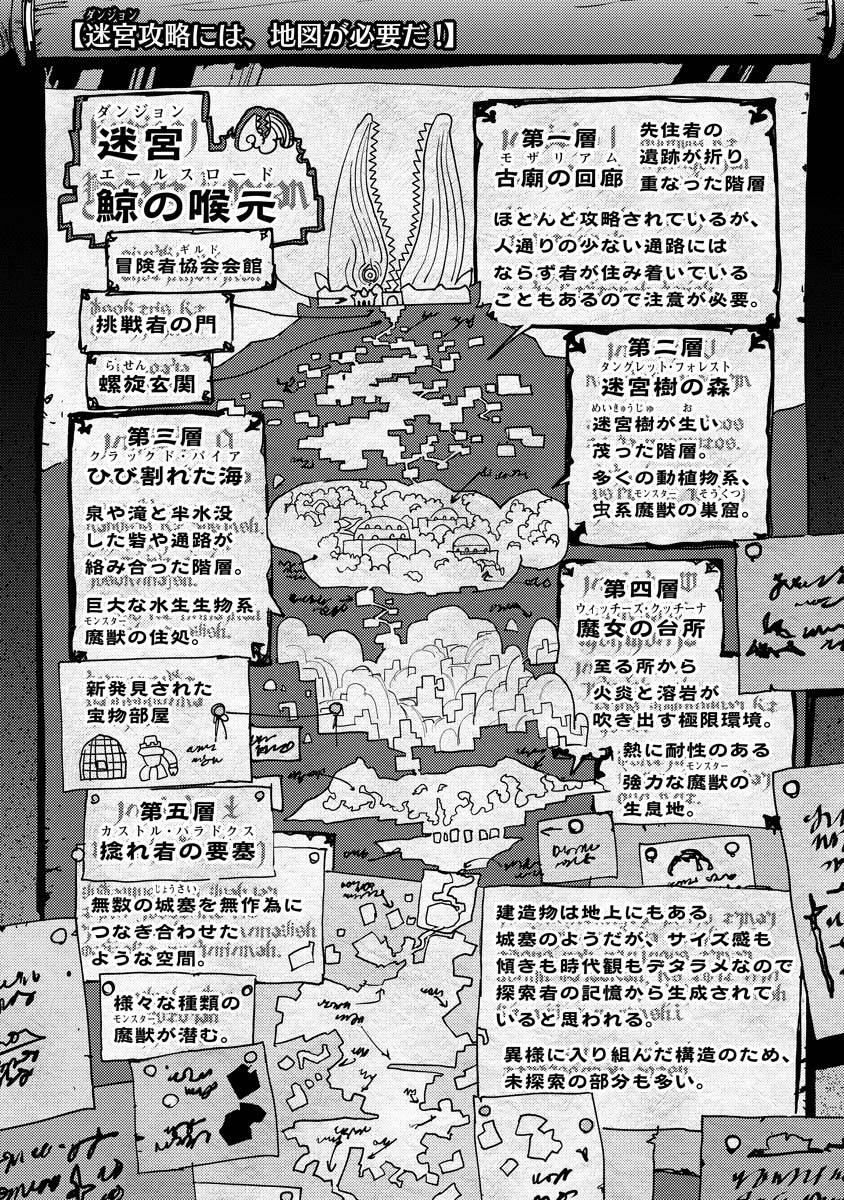 ダンジョン
【迷宮攻略には、地図が必要だ！】
ダンジョン
迷宮
エールスロード
鯨の喉元
ギルド
冒険者協会会館
挑戦者の門
らせん
螺旋玄関
第一層
モザリアム
古廟の回廊
先住者の
遺跡が折り
重なった階層
ほとんど攻略されているが、
人通りの少ない通路には
ならず者が住み着いている
こともあるので注意が必要。
第二層
タングレット・フォレスト
迷宮樹の森
めいきゅうじゅ お
迷宮樹が生い
茂った階層。
多くの動植物系、
モンスター そうくつ
虫系魔獣の巣窟。
第三層
クラックド・パイア
ひび割れた海
泉や滝と半水没
した砦や通路が
絡み合った階層。
巨大な水生生物系
モンスター
魔獣の住処。
新発見された
宝物部屋
第四層
ウィッチーズ・クッチーナ
魔女の台所
至る所から
火炎と溶岩が
吹き出す極限環境。
熱に耐性のある
モンスター
強力な魔獣の
生息地。
第五層
カストル・パラドクス
捻れ者の要塞
じょうさい
無数の城塞を無作為に
つなぎ合わせた
ような空間。
様々な種類の
モンスター
魔獣が潜む。
建造物は地上にもある
城塞のようだが、サイズ感も
傾きも時代観もデタラメなので
探索者の記憶から生成されて
いると思われる。
異様に入り組んだ構造のため、
未探索の部分も多い。